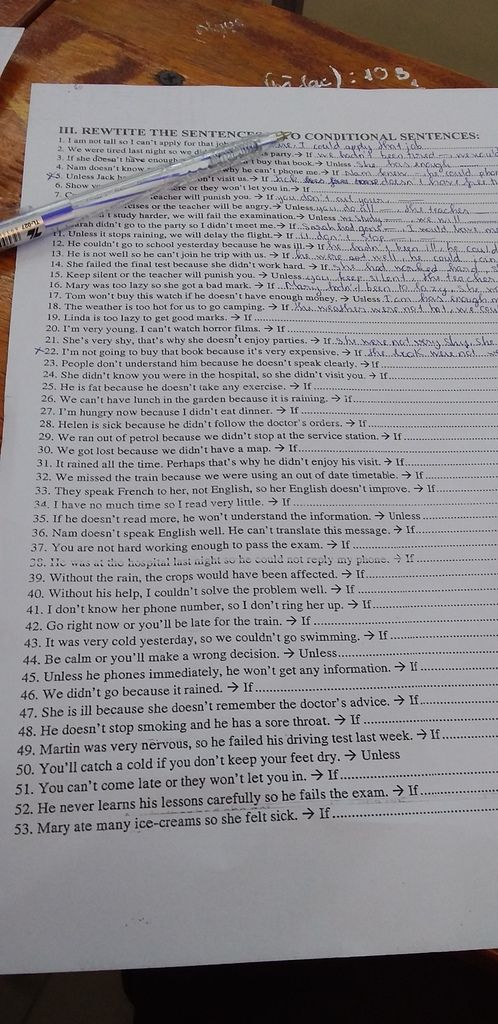 III. REWTITE THE SENTENCES TO CONDITIONAL SENTENCES:
1. I am not tall so I can't apply for that job I could apply that job
2. We were tired last night so we party. → If we hadn't been tired
3. If she doesn't have enough buy that book. → Unless she has enough
4. Nam doesn't know why he can't phone me. → If Nam knew he could phone
5. Unless Jack won't visit us. → If Jack doesn't have
6. Show or they won't let you in. → If
7. teacher will punish you. → If you don't
or the teacher will be angry. → Unless you do all the teacher
study harder, we will fail the examination. → Unless we study we will
Sarah didn't go to the party so I didn't meet me. → If Sarah had gone I would have
11. Unless it stops raining, we will delay the flight. → If don't stop
12. He couldn't go to school yesterday because he was ill. → If hadn't been ill, he could
13. He is not well so he can't join he trip with us. → If he were not well, he could join
14. She failed the final test because she didn't work hard. → If she had worked hard,
15. Keep silent or the teacher will punish you. → Unless you keep silent the teacher
16. Mary was too lazy so she got a bad mark. → If Mary hadn't been to lazy, she
17. Tom won't buy this watch if he doesn't have enough money. → Unless has enough
18. The weather is too hot for us to go camping. → If the weather were not hot, we
19. Linda is too lazy to get good marks. → If
20. I'm very young. I can't watch horror films. → If
21. She's very shy, that's why she doesn't enjoy parties. → If she were not very shy. She
22. I'm not going to buy that book because it's very expensive. → If the book were not
23. People don't understand him because he doesn't speak clearly. → If
24. She didn't know you were in the hospital, so she didn't visit you. → If
25. He is fat because he doesn't take any exercise. → If
26. We can't have lunch in the garden because it is raining. → if
27. I'm hungry now because I didn't eat dinner. → If
28. Helen is sick because he didn't follow the doctor's orders. → If
29. We ran out of petrol because we didn't stop at the service station. → If
30. We got lost because we didn't have a map. → If
31. It rained all the time. Perhaps that's why he didn't enjoy his visit. → If
32. We missed the train because we were using an out of date timetable. → If
33. They speak French to her, not English, so her English doesn't improve. → If
34. I have no much time so I read very little. → If
35. If he doesn't read more, he won't understand the information. → Unless
36. Nam doesn't speak English well. He can't translate this message. → If
37. You are not hard working enough to pass the exam. → If
38. He was at the hospital last night so he could not reply my phone. → If
39. Without the rain, the crops would have been affected. → If
40. Without his help, I couldn't solve the problem well. → If
41. I don't know her phone number, so I don't ring her up. → If
42. Go right now or you'll be late for the train. → If
43. It was very cold yesterday, so we couldn't go swimming. → If
44. Be calm or you'll make a wrong decision. → Unless
45. Unless he phones immediately, he won't get any information. → If
46. We didn't go because it rained. → If
47. She is ill because she doesn't remember the doctor's advice. → If
48. He doesn't stop smoking and he has a sore throat. → If
49. Martin was very nervous, so he failed his driving test last week. → If
50. You'll catch a cold if you don't keep your feet dry. → Unless
51. You can't come late or they won't let you in. → If
52. He never learns his lessons carefully so he fails the exam. → If
53. Mary ate many ice-creams so she felt sick. → If